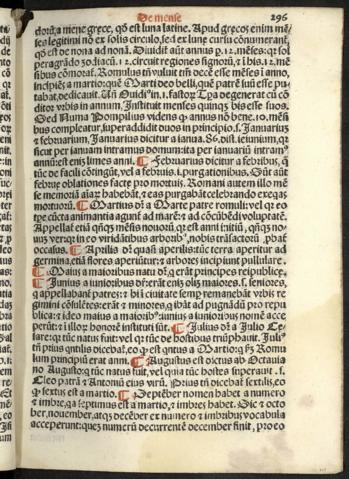 De mense 296
dorū,a mene grece, qḋ est luna latine. Apud grecos enim mē
ses legitimi nō ex solis circulo,sed ex lune cursu cōnumerant̄,
qḋ est de nona ad nonā. Diuidit aūt annus p.12.mēses:q̄ sol
peragrādo zodiacū.12.circuit regiones signorū,⁊ i bis.12.mē
sibus cōmorat̄. Romulus tn̄ vuluit tm̄ decē esse mēses i anno,
incipiēs a martio:quē Marti deo belli,quē patrē suū esse pu⸗
tabat,dedicauit. Uñ Ouidi⁹ in.1.fastoꝝ Tpa degerat cū cō
ditor vrbis in annum, Instituit menses quinqꝫ bis esse suos.
Sed Numa Pompilius videns ꝙ annus nō bene.10.mēsi
bus compleatur,superaddidit duos in principio,s. Januarius
⁊ februarium, Januarius dicitur a ianua.86.dist.ieiunium, qꝛ
sicut per ianuam intramus domum,ita per ianuariū intram⁹
annū:est eniȝ limes anni. ¶ Februarius dicitur a febribus, ꝙ
tūc de facili cōtingūt, vel a februis.i.purgationibus. Sūt aūt
februe oblationes facte pro mortuis. Romani autem illo mē
se memoriā aīaꝝ habebāt,⁊ eas purgabāt celebrando exeqas
mortuorū. ¶ Martius dr̄ a Marte patre romuli: vel qꝛ eo
tpe cūcta animantia agunt̄ ad marē:⁊ ad cōcūbēdi voluptatē.
Appellat̄ etiā
occasus. ¶ Aprilis dr̄ quasi aperilis:tūc terra aperitur ad
germina,etiā flores aperiūtur:⁊ arbores incipiunt pullulare.
¶ Maius a maioribus natu dr̄,q erāt principes reipublice.
¶ Junius a iunioribus dr̄:erāt eniȝ olīȝ maiores.s.seniores,
q appellabant̄ patres:⁊ hi i ciuitate semp remanebāt vrbis re
gimini cōsulētes:erāt ⁊ minores,q ibāt ad pugnādū pro repu
blica:⁊ ideo maius a maiorib⁹:iunius a iunioribus nomē acce
perūt:⁊ i illoꝝ honorē instituti sūt. ¶ Julius dr̄ a Julio Ce⸗
sare:qꝛ tūc natus fuit: vel qꝛ tūc de hostibus triūphauit. Juli⁹
tn̄ prius qntilis dicebat̄,eo ꝙ est qntus a Martio:q ꝫm Romu
lum principiū erat anni. ¶ Augustus est dictus ab Octauia
no Augusto:ꝙ tūc natus fuit, vel quia tūc hostes superauit.s.
Cleopatrā ⁊ Antoniū eius virū. Prius tn̄ dicebat̄ sextilis,eo
ꝙ sextus est a martio. ¶ September nomen habet a numero
⁊ imbre,qꝛ septimus est a martio,⁊ imbres habet. Sic ⁊ octo
ber,nouember,atqꝫ december ex numero ⁊ imbribus vocabula
acceperunt:quem numerū decurrentē december finit, pro eo